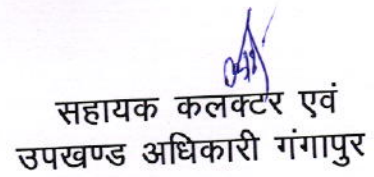 सहायक कलक्टर एवं
उपखण्ड अधिकारी गंगापुर